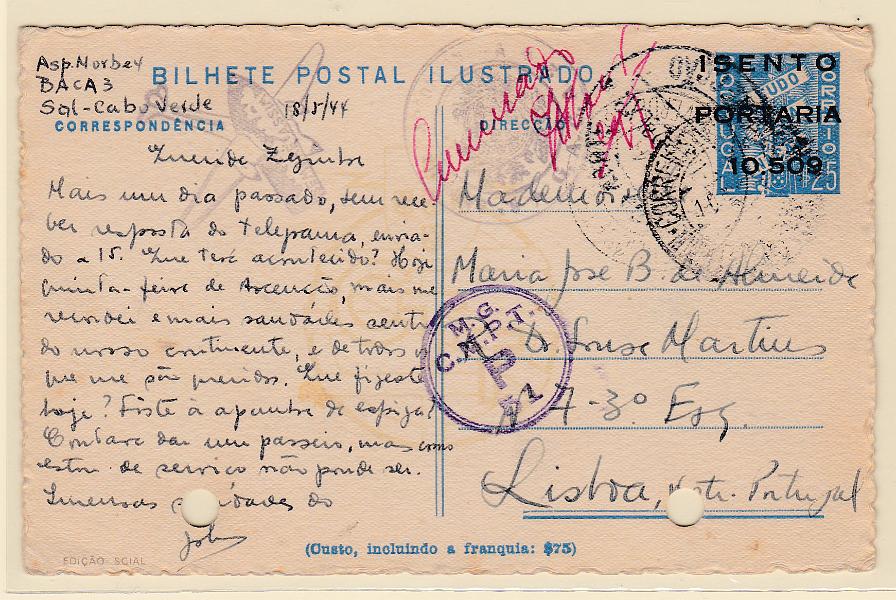 Asp. Norbey
BACA 3
Sal-Cabo Verde
BILHETE POSTAL ILUSTRADO
18/5/44
CORRESPONDÊNCIA
DIRECÇÃO
ISENTO
PORTARIA
10.509
TUDO
25
CORREIO
Censurado
Querida
Mais um dia passado, sem rece
ber resposta do telegrama, envia-
do a 15. Que terá acontecido? Hoje
quinta-feira de Ascenção, mais me
recordei e mais saudades senti
do nosso continente, e de todos os
que me são queridos. Que fizeste
hoje? Foste à apanha de espiga?
Contava dar um passeio, mas como
estou de serviço não pude ser.
Imensas saudades do
Mademoiselle
Maria José B. de Almeida
Martins
7-3º Esq.
Lisboa, Portugal
M.G.
C.M.P.T.
P
1
(Custo, incluindo a franquia: $75)
EDIÇÃO SCIAL